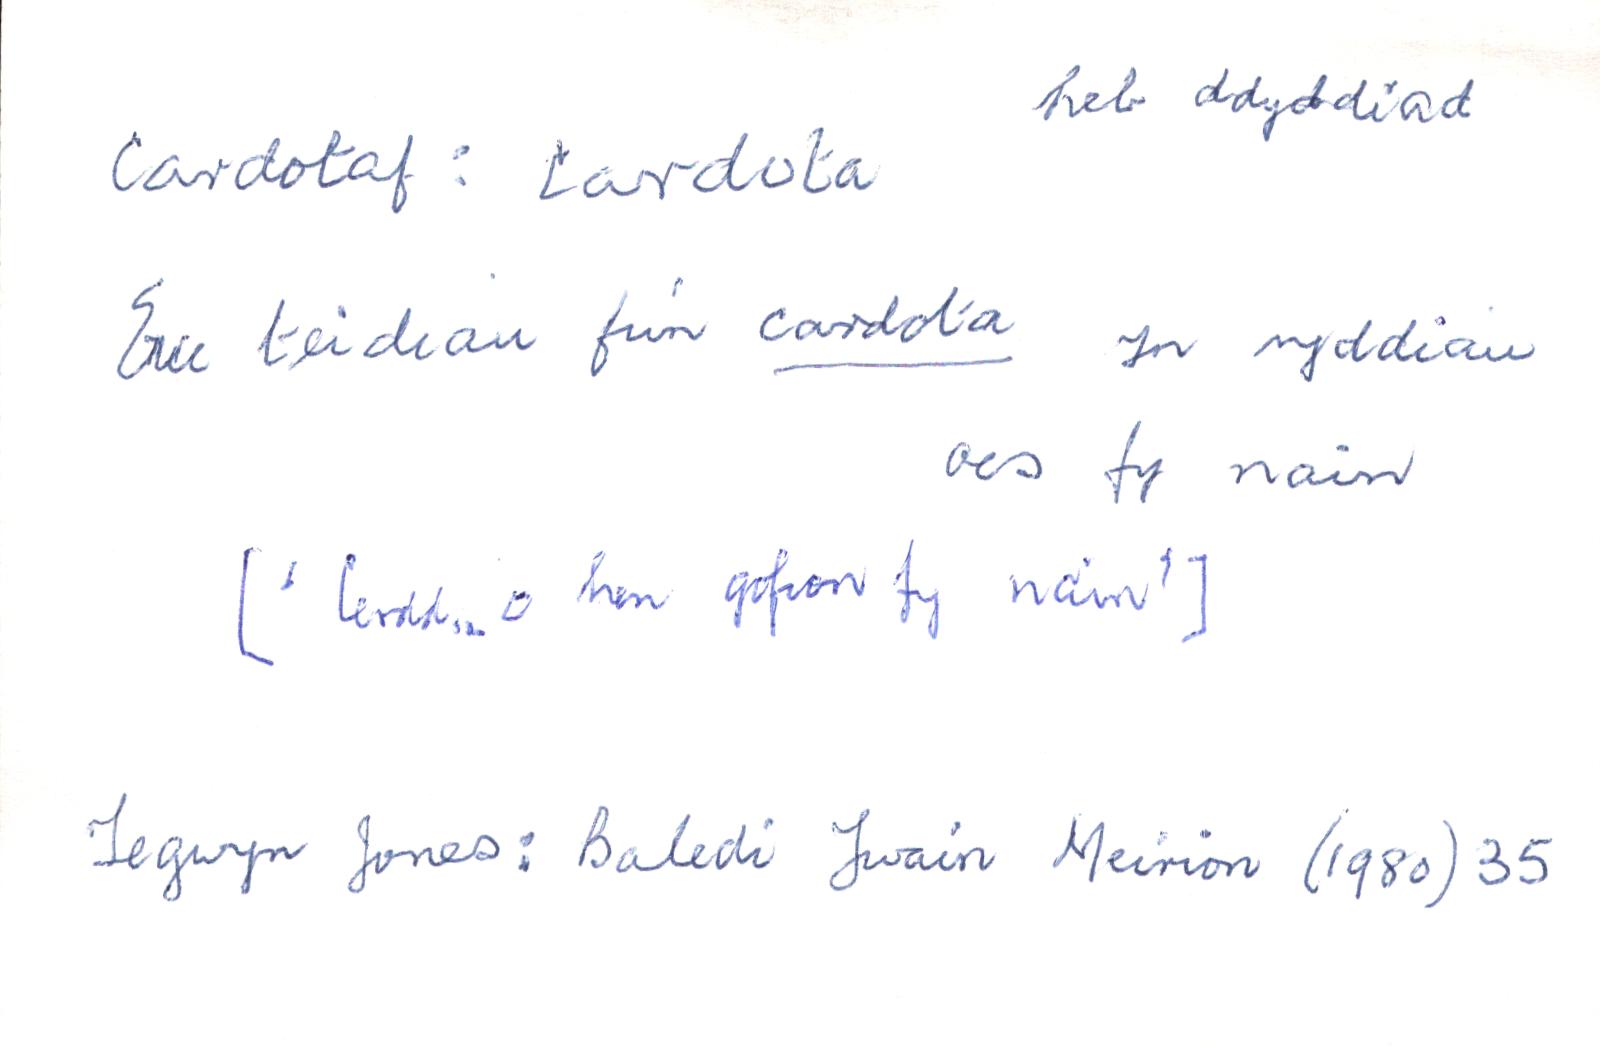 heb ddyddiad
Cardotaf: Cardota
Eu teidiau fu'n cardota yn nyddiau
oes fy nain
['Cerdd... o hen gofion fy nain']
Tegwyn Jones: Baledi Ywain Meirion (1980) 35